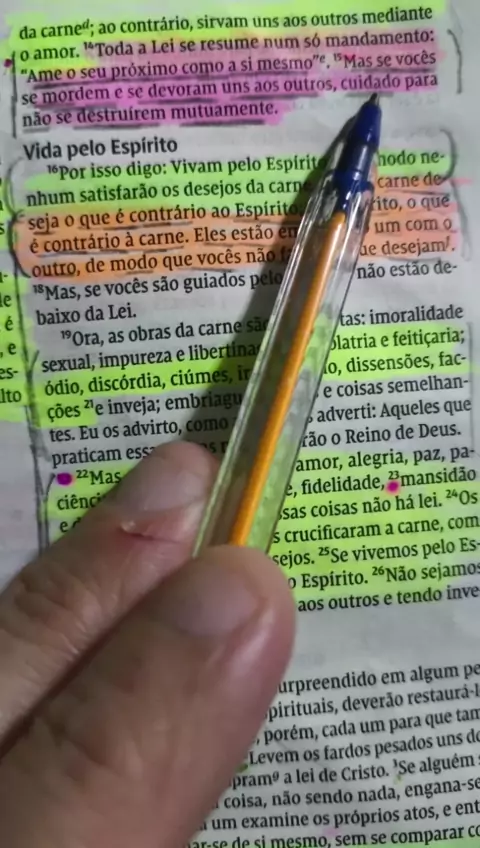 da carneᵈ; ao contrário, sirvam uns aos outros mediante
o amor. ¹⁴Toda a Lei se resume num só mandamento:
"Ame o seu próximo como a si mesmo"ᵉ. ¹⁵Mas se vocês
se mordem e se devoram uns aos outros, cuidado para
não se destruírem mutuamente.
Vida pelo Espírito
¹⁶Por isso digo: Vivam pelo Espírito modo ne-
nhum satisfarão os desejos da carne carne de-
seja o que é contrário ao Espírito rito, o que
é contrário à carne. Eles estão em um com o
outro, de modo que vocês não ue desejamᶠ.
¹⁸Mas, se vocês são guiados pelo não estão de-
baixo da Lei.
¹⁹Ora, as obras da carne são tas: imoralidade
sexual, impureza e libertina latria e feitiçaria;
ódio, discórdia, ciúmes, ir o, dissensões, fac-
ções ²¹e inveja; embriagu e coisas semelhan-
tes. Eu os advirto, como adverti: Aqueles que
praticam ess rão o Reino de Deus.
²²Mas amor, alegria, paz, pa-
ciênci e, fidelidade, ²³mansidão
e d sas coisas não há lei. ²⁴Os
s crucificaram a carne, com
sejos. ²⁵Se vivemos pelo Es-
o Espírito. ²⁶Não sejamos
aos outros e tendo inve
urpreendido em algum pe
pirituais, deverão restaurá-l
, porém, cada um para que tam
Levem os fardos pesados uns do
pramᵍ a lei de Cristo. ³Se alguém
coisa, não sendo nada, engana-se
um examine os próprios atos, e ent
ar-se de si mesmo, sem se comparar co